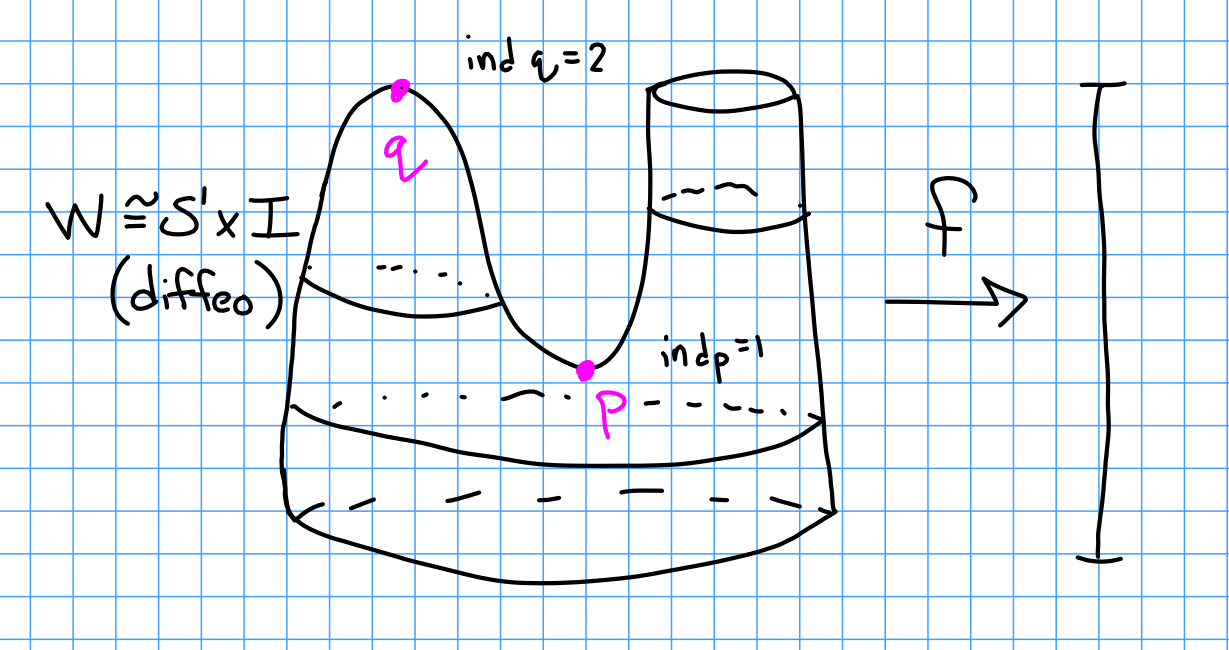 ind q = 2
q
W ≅ S¹ x I
(diffeo)
f
ind p = 1
p